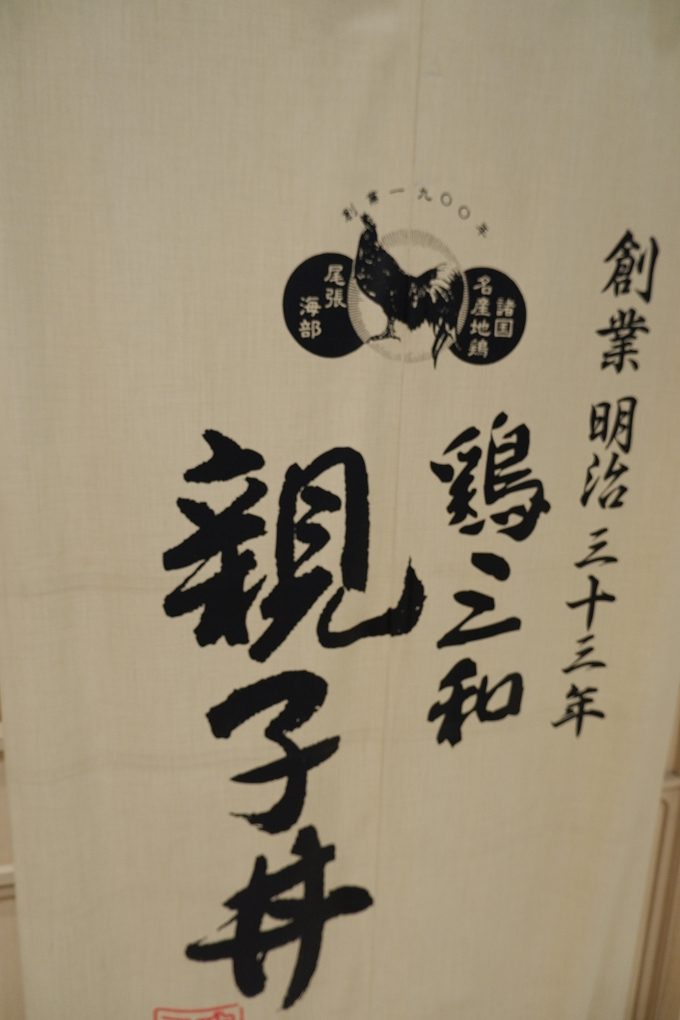 創業一九〇〇年
尾張
海部
諸国
名産地鶏
創業 明治 三十三年
鶏三和
親子丼